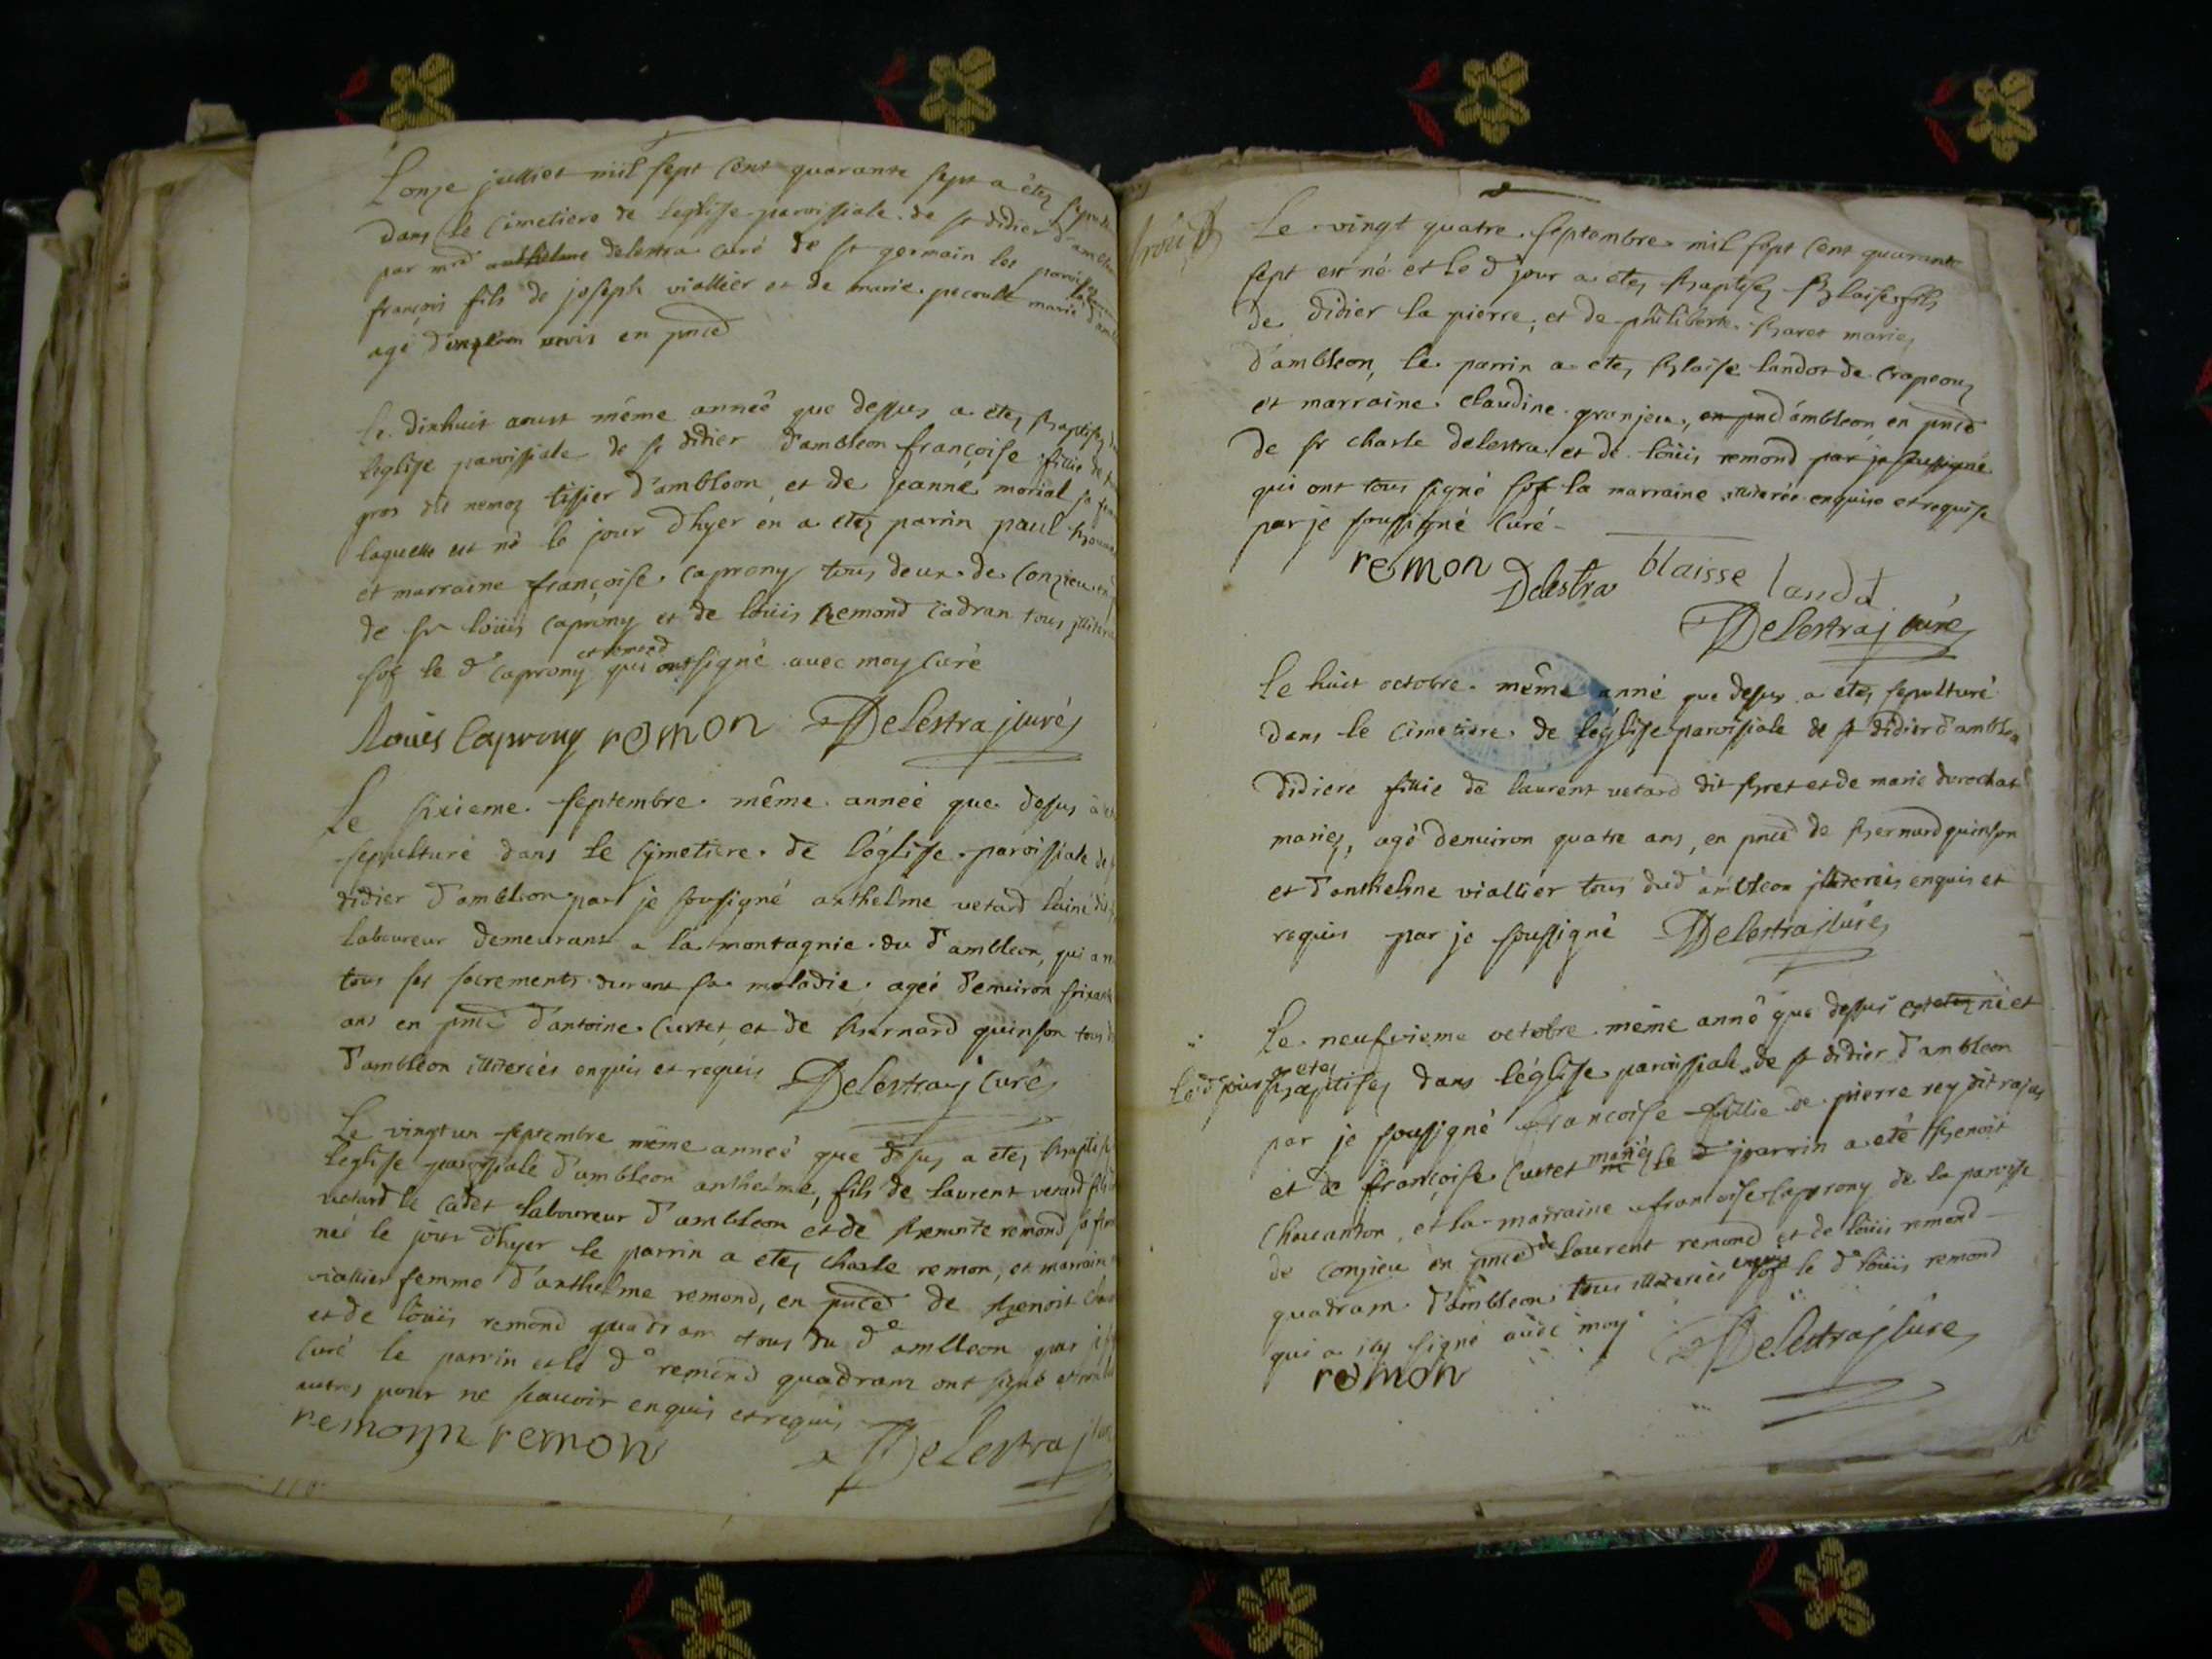 Lonze julliet mil sept cent quarante sept a étez
dans le cimetiere de leglisse paroissiale de st didier d'amble
par mr delestra curé de st germain les parois
françois fils de joseph viallier et de marie pecoult marié
agé en pnce
le dixhuit aoust même anneé que dessus a étez baptisez
leglise paroissiale de st didier d'ambleon françoise fillie de
gros dit nemoz tissier d'ambleon et de jeanne morial sa
laquelle est né le jour d'hyer en a etez parrin paul
et marraine françoise caprony tous deux de conzieu
de sr loüis caprony et de loüis remond cadran tous
sof le d caprony et remond qui ont signé avec moy curé
Louis Caprony remon Delestra j curé
Le sixieme septembre même anneé que desus a
sepulturé dans le cymetiere de l'églisse paroissiale de
didier d'ambleon par je sousigné anthelme vetard lainé dit
laboureur demeurant a la montagnie du d ambleon, qui a
tous ses sacrements durant sa maladie ageé d'enuiron
ans en pnce d'antoine curtet et de bernard quinson tous
d'ambleon illiterés enquis et requis Delestra j curé
Le vingtun septembre même anneé que desus a etez baptisé
leglise paroissiale d'ambleon anthelme, fils de laurent vetard fils
vetard le cadet laboureur d'ambleon et de remond sa
neé le jour d'hyer le parrin a etez charle remon, et marraine
viallier femme d'anthelme remond, en pnce de benoit
et de loüis remond quadram tous du de ambleon par
curé le parrin et le d remond quadram ont signé et
autres pour ne scauoir enquis et requis
remon remon Delestra j
Le vingt quatre septembre mil sept cent quarante
sept est né et le d jour a etez baptisez blaise fils
de didier la pierre, et de philiberte baret mariez
d'ambleon, le parrin a etez blaise landot de crapeou
et marraine claudine granjeu, en pnce d'ambleon en pnce
de sr charle delestra et de loüis remond par je sousigné
qui ont tous signé sof la marraine illiterée enquise et requise
par je soussigné curé
remon Delestra blaisse landot
Delestra j curé
Le huit octobre même anné que desus a etez sepulturé
dans le cimetiere de léglise paroissiale de st didier d'ambleo
didiere fillie de laurent vetard dit bret et de marie durochat
mariez, agé denuiron quatre ans, en pnce de bernard quinson
et d'anthelme viallier tous dud ambleon illiterés enquis et
requis par je soussigné Delestra j curé
Le neufvieme octobre même anné que dessus né et
le d jour a etez baptisez dans l'église paroissiale de st didier d'ambleon
par je soussigné francoise fillie de pierre rey dit rajas
et de françoise curtet mariés le parrin a eté benoit
chavanton, et la marraine francoise caprony de la paroisse
de conzieu en pnce de laurent remond et de loüis remond
quadram d'ambleon tous illiterés enquis sof le d loüis remond
qui a signé auec moy
remon Delestra j curé